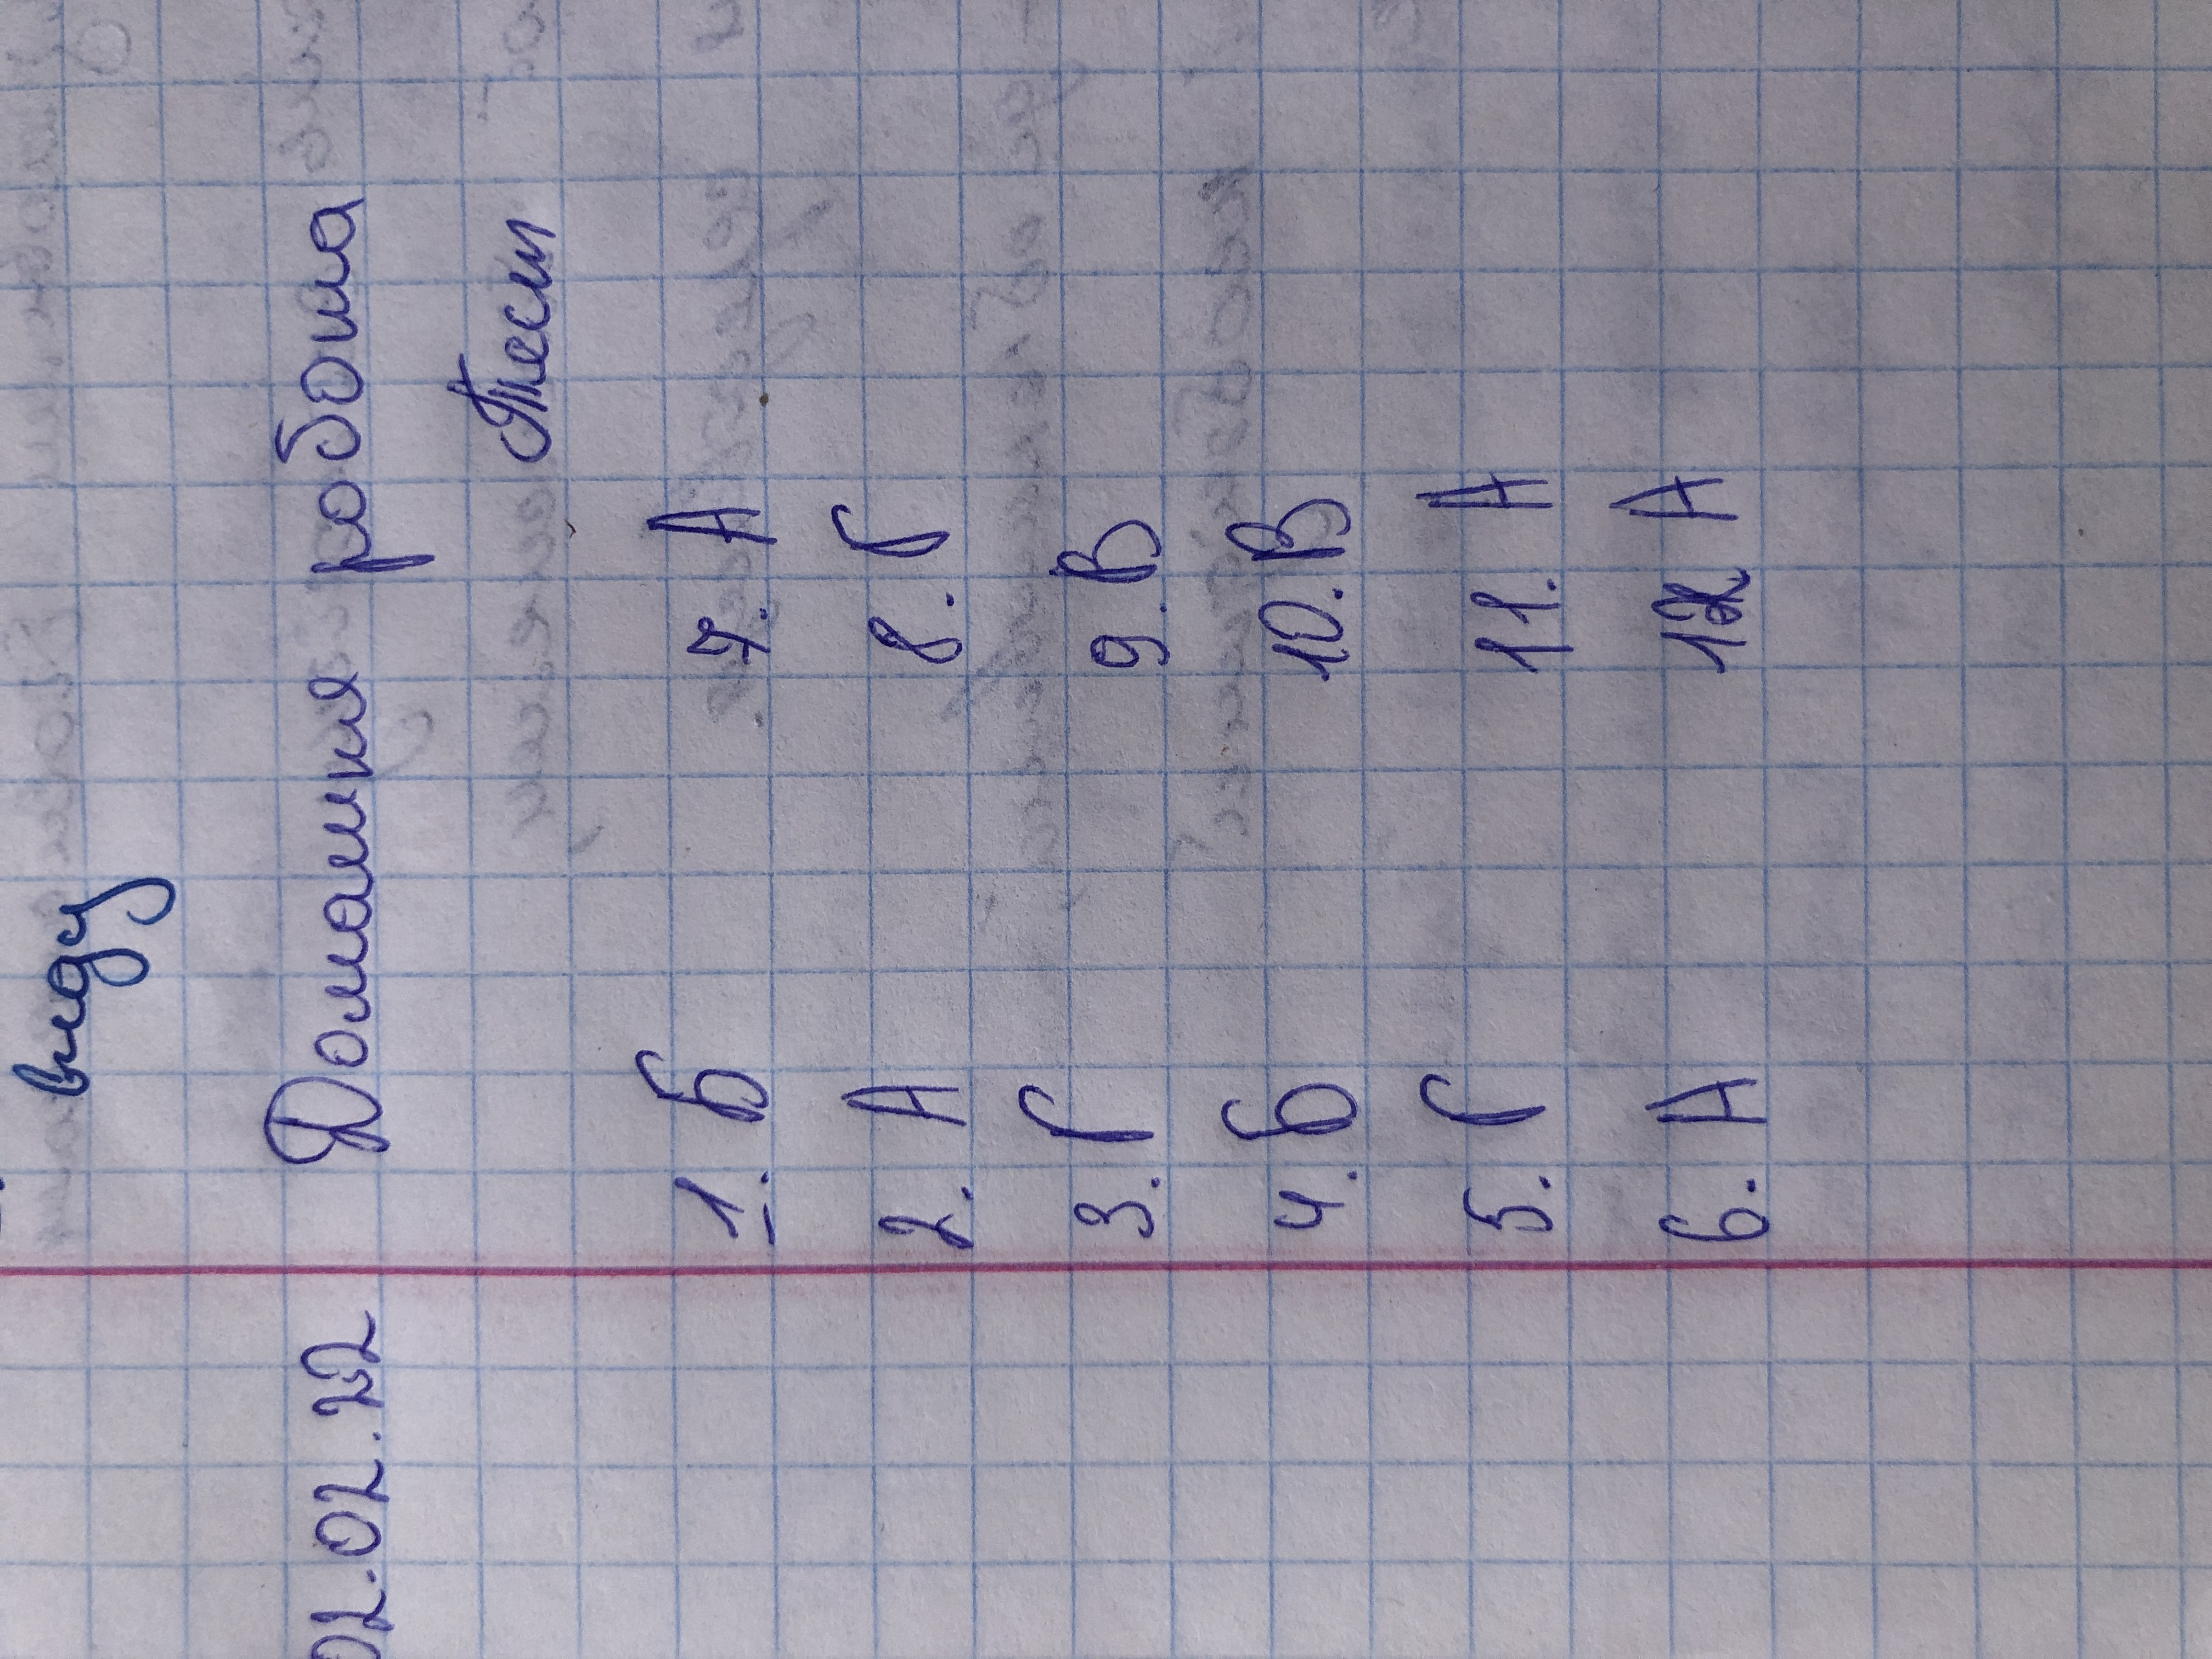 виду
02.02.22 Домашня робота
Тест
1. Б 7. А
2. А 8. Г
3. Г 9. В
4. Б 10. В
5. Г 11. А
6. А 12 А